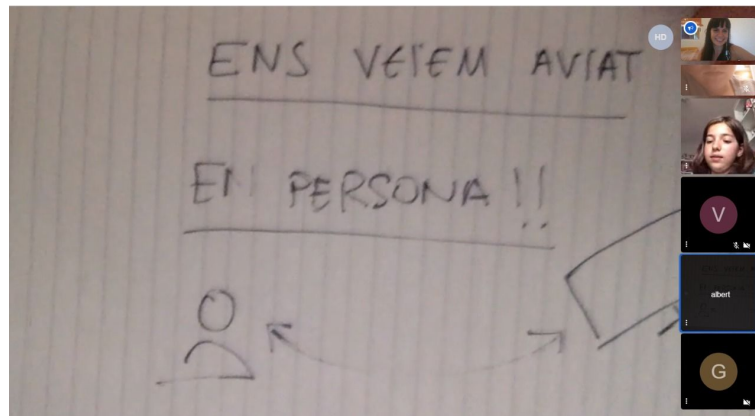 ENS VEIEM AVIAT
EN PERSONA!!
HD
V
albert
G